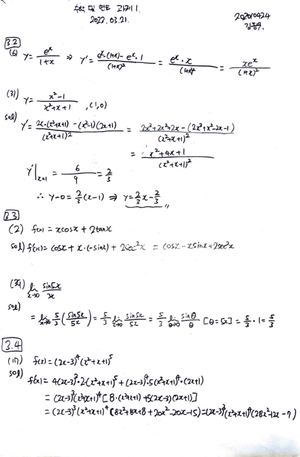 2022.03.21.
3.2
y = e^x/(1+x) ⇒ y' = (e^x(1+x) - e^x·1)/(1+x)² = e^x·x/(1+x)² = xe^x/(1+x)²
y = (x²-1)/(x²+x+1), (1,0)
sol) y' = (2x·(x²+x+1) - (x²-1)(2x+1))/(x²+x+1)² = (2x³+2x²+2x - (2x³+x²-2x-1))/(x²+x+1)²
= (x²+4x+1)/(x²+x+1)²
y'|x=1 = 6/9 = 2/3
∴ y-0 = 2/3(x-1) ⇒ y = 2/3x - 2/3
3.3
(2) f(x) = xcosx + 2tanx
sol) f'(x) = cosx + x·(-sinx) + 2sec²x = cosx - xsinx + 2sec²x
lim x→0 sin5x/3x
sol) = lim x→0 5/3(sin5x/5x) = 5/3 lim x→0 sin5x/5x = 5/3 lim θ→0 sinθ/θ [θ=5x] = 5/3·1 = 5/3
3.4
(17) f(x) = (2x-3)⁴(x²+x+1)⁵
sol) f'(x) = 4(2x-3)³·2(x²+x+1)⁵ + (2x-3)⁴·5(x²+x+1)⁴·(2x+1)
= (2x-3)³(x²+x+1)⁴[8·(x²+x+1) + 5(2x-3)(2x+1)]
= (2x-3)³(x²+x+1)⁴[8x²+8x+8+20x²-20x-15] = (2x-3)³(x²+x+1)⁴(28x²-12x-7)